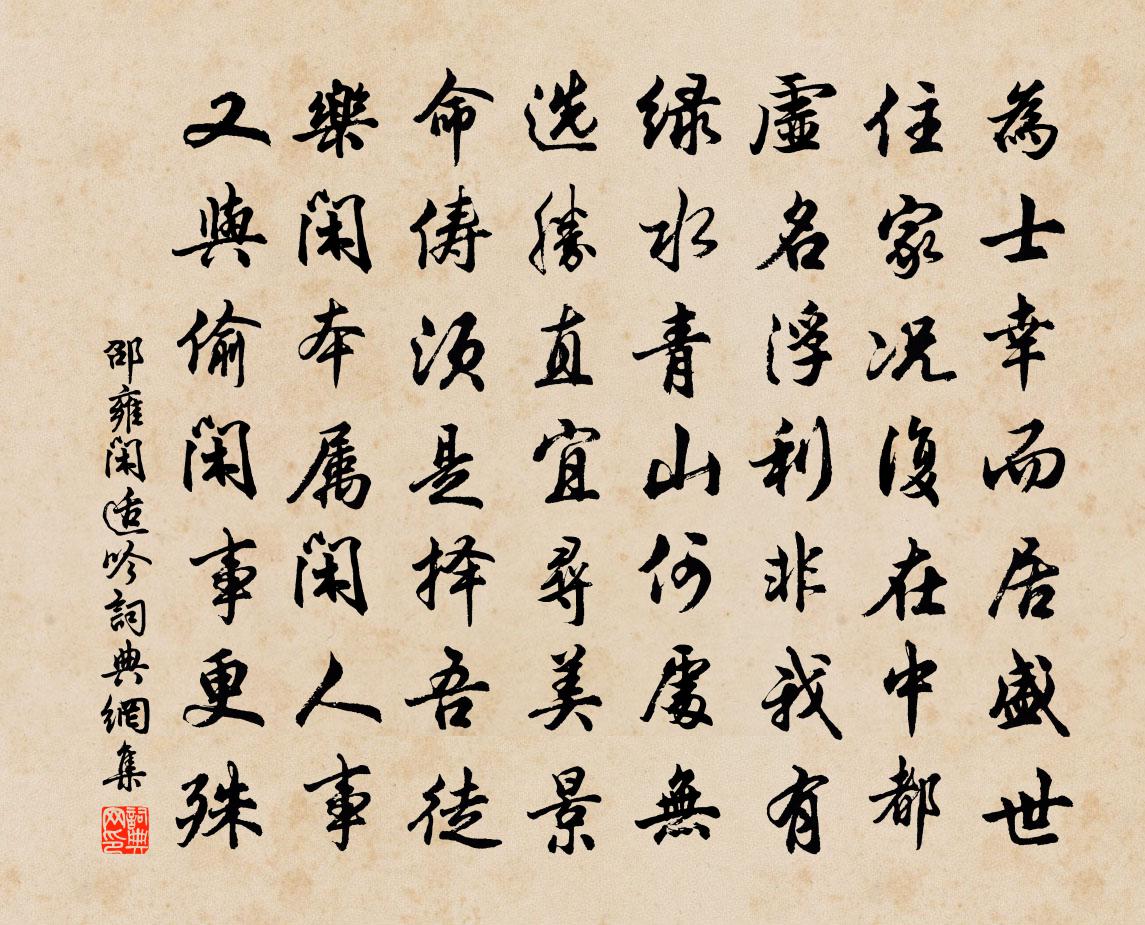 為士幸而居盛世
住家况復在中都
虛名浮利非我有
緑水青山何處無
选勝直宜尋美景
命儔須是择吾徒
樂閑本属閑人事
又與偷閑事更殊
邵雍閑適吟詞典網集
詞典
网印